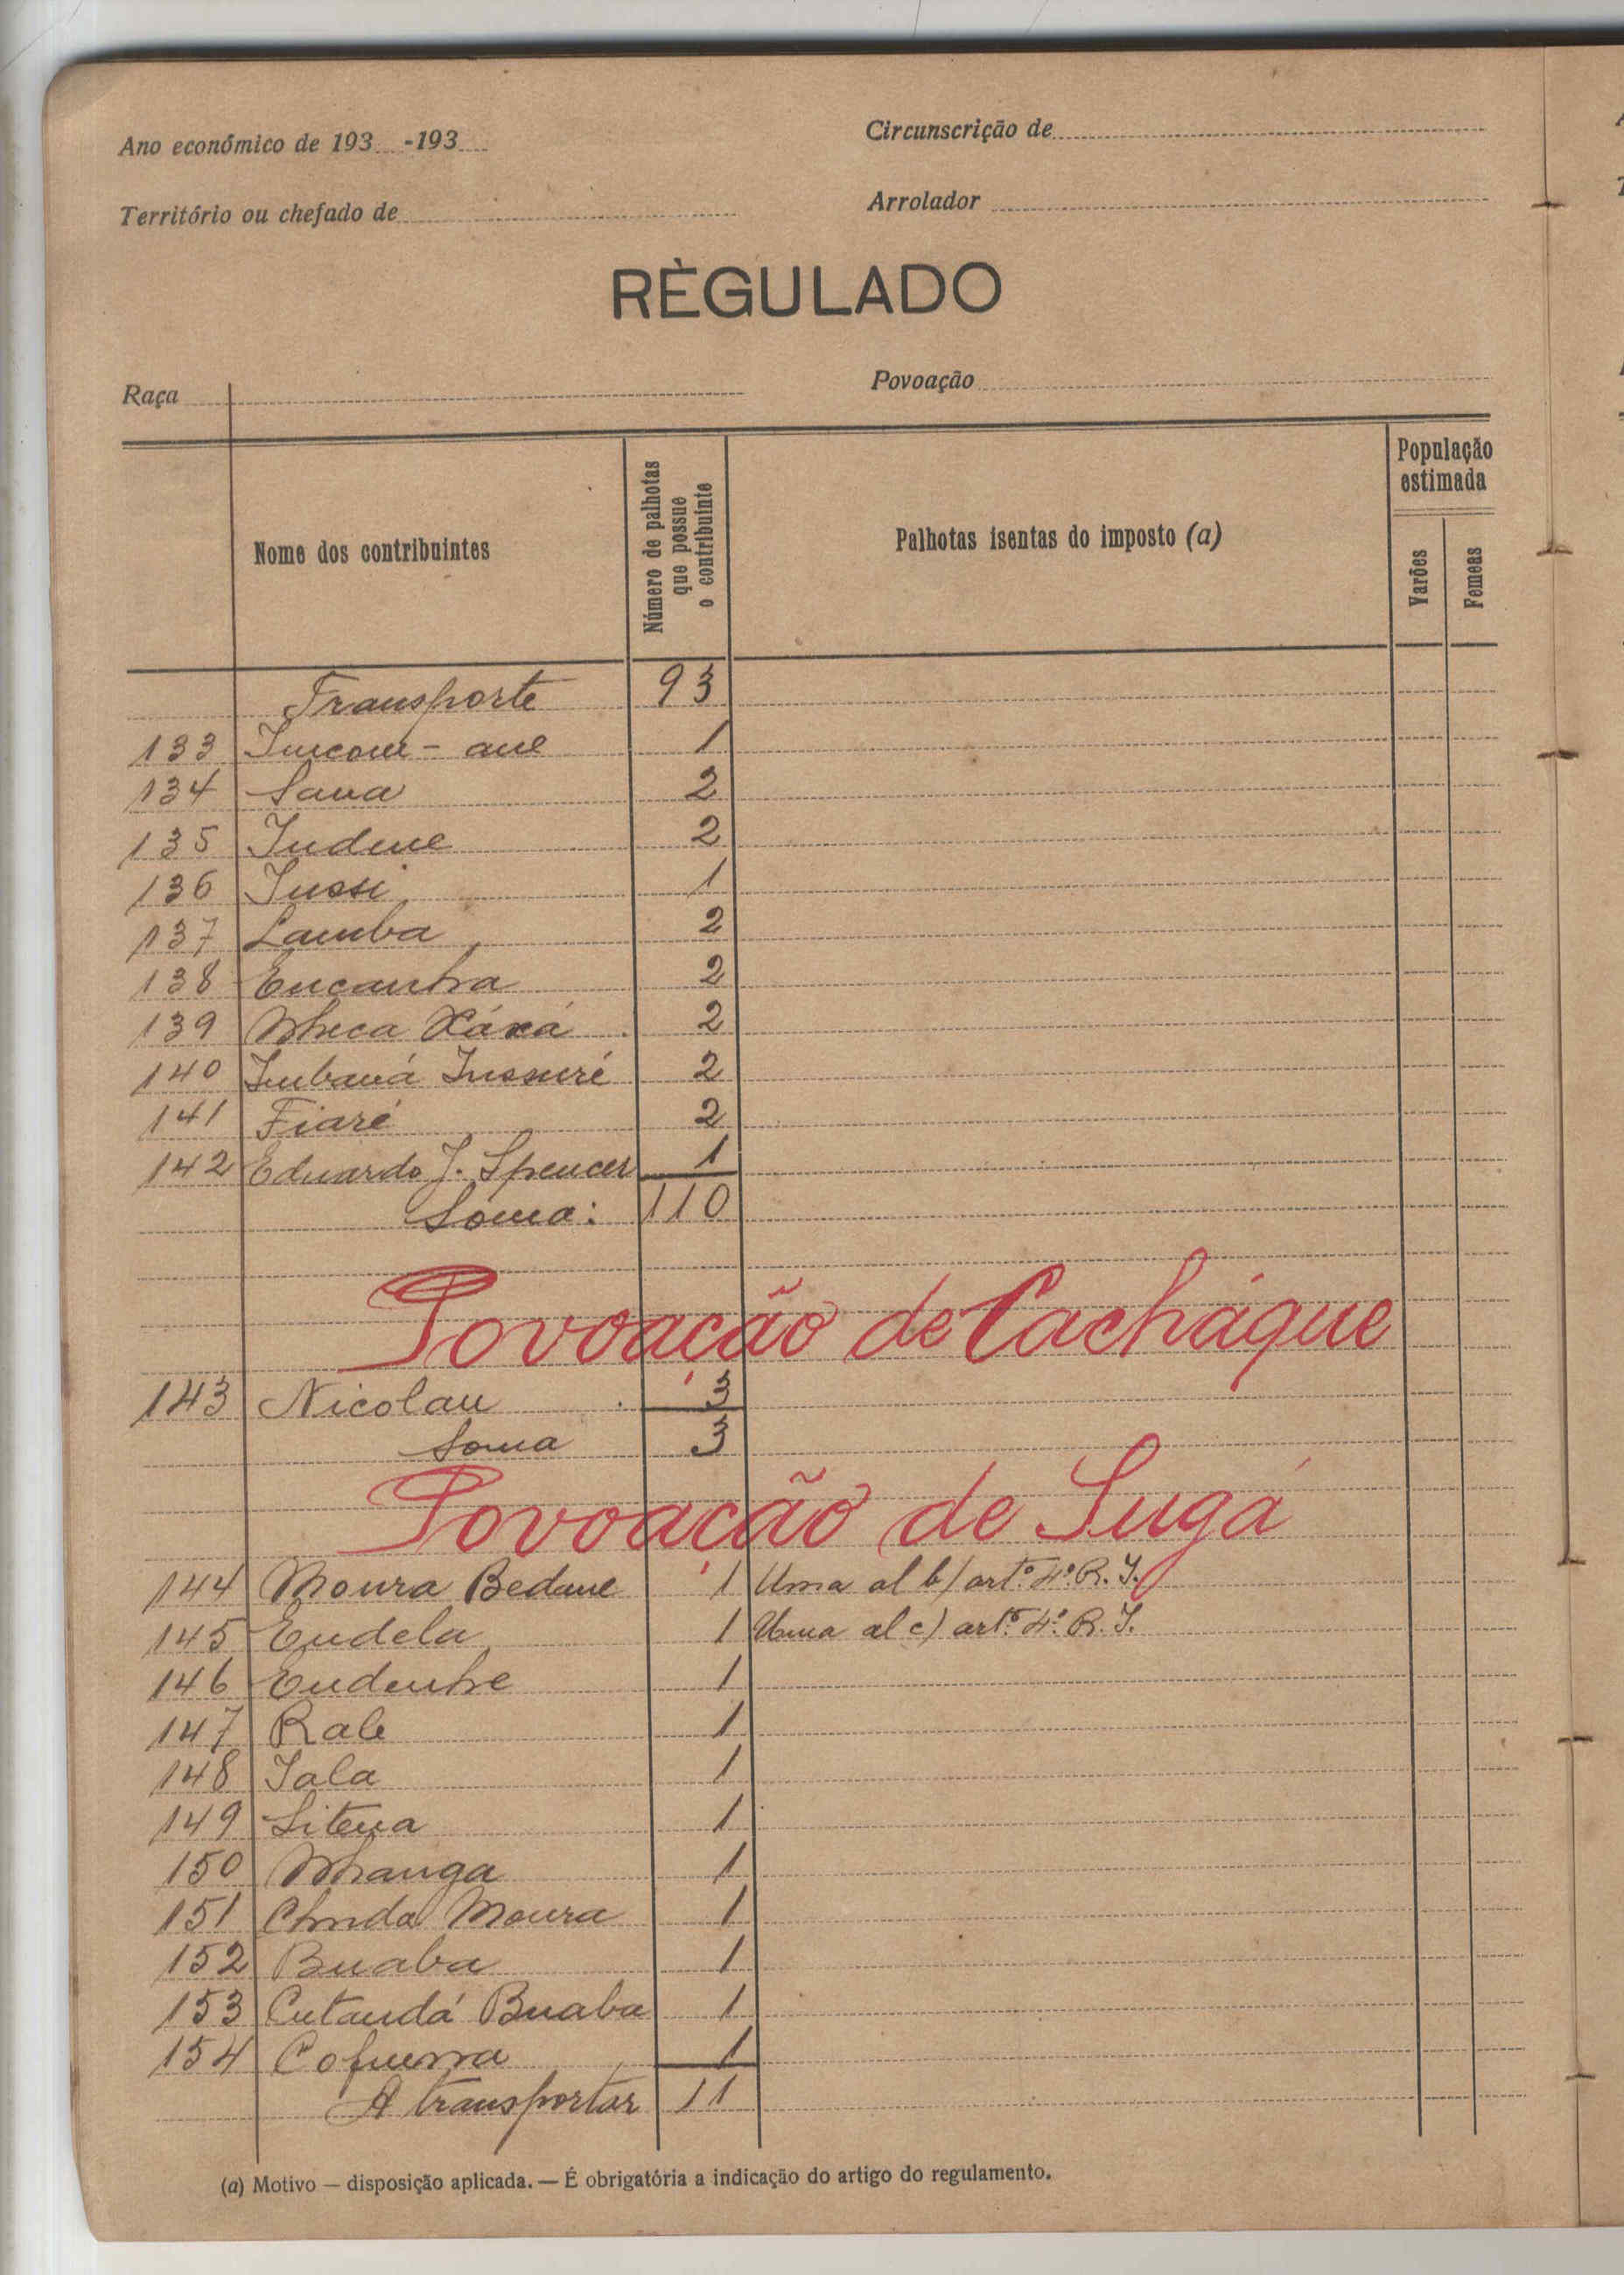 Ano económico de 193 -193
Circunscrição de
Território ou chefado de
Arrolador
RÈGULADO
Raça
Povoação
Nome dos contribuintes
Número de palhotas que possue o contribuinte
Palhotas isentas do imposto (a)
População estimada
Varões
Femeas
Transporte 93
133 1
134 Sana 2
135 Indene 2
136 Iussi 1
137 Lamba 2
138 Encanha 2
139 Nheca Xáxá 2
140 2
141 Fiaré 2
142 Eduardo J. Spencer 1
Soma: 110
Povoação de Cacháque
143 Nicolau 3
Soma 3
Povoação de Sugá
144 Moura Bedane 1 Uma al b) artº 4º R. I.
145 Endela 1 Uma al c) artº 4º R. I.
146 Endenhe 1
147 Rale 1
148 Iala 1
149 Sitena 1
150 Nhanga 1
151 Moura 1
152 Buaba 1
153 Cutandá Buaba 1
154 1
A transportar 11
(a) Motivo — disposição aplicada. — É obrigatória a indicação do artigo do regulamento.